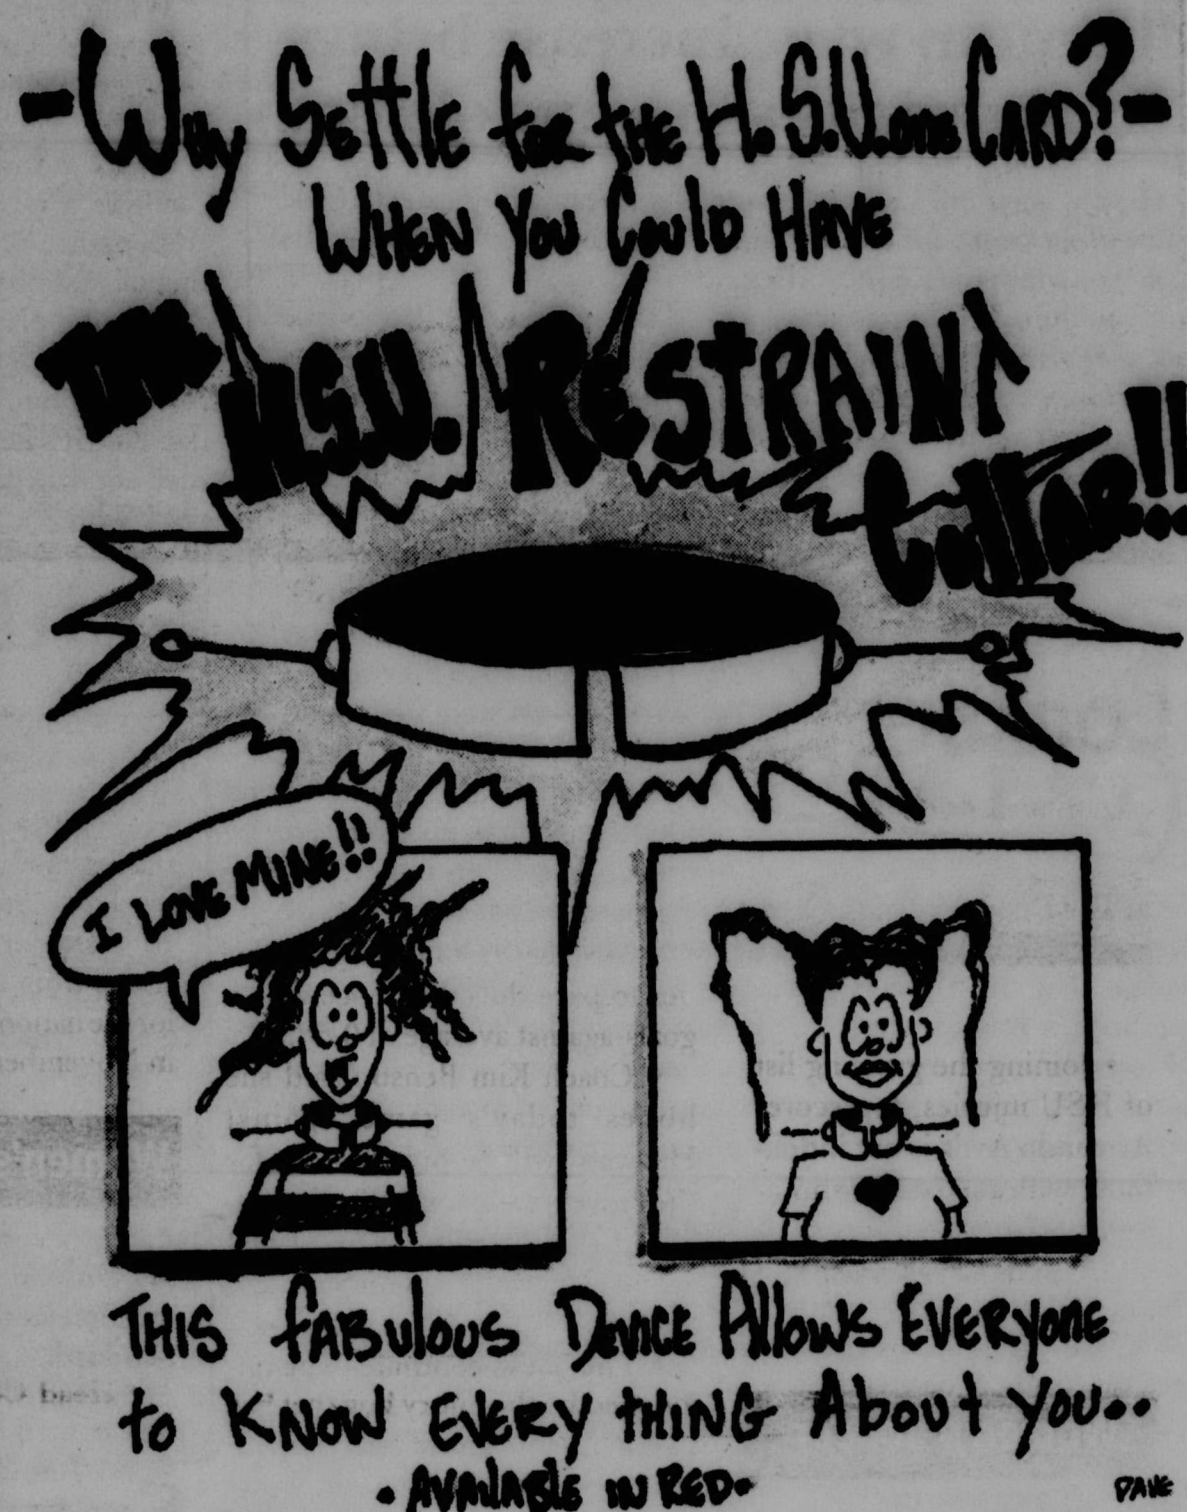 -Why Settle for the H.S.U. one Card?-
When You Could Have
The H.S.U. Restraint
Collar!!
I Love Mine!!
This fabulous Device Allows Everyone
to Know Every thing About You..
• Available in Red •
Dave